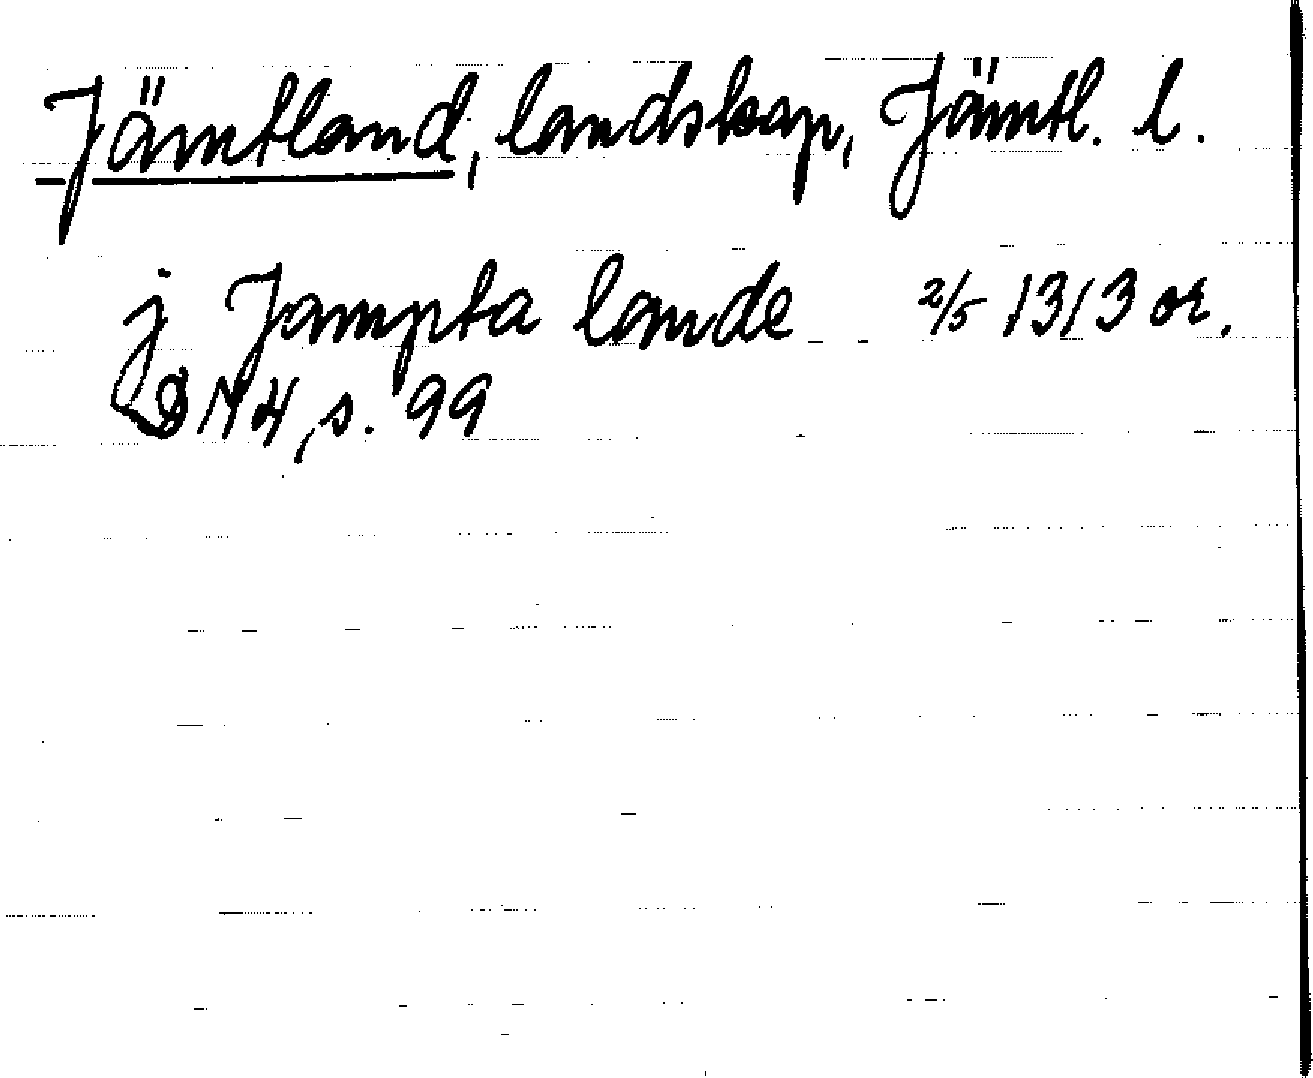 Jämtland, landskap, Jämtl. l.
j Jampta lande 2/5 1313 or.
DN 4, s. 99